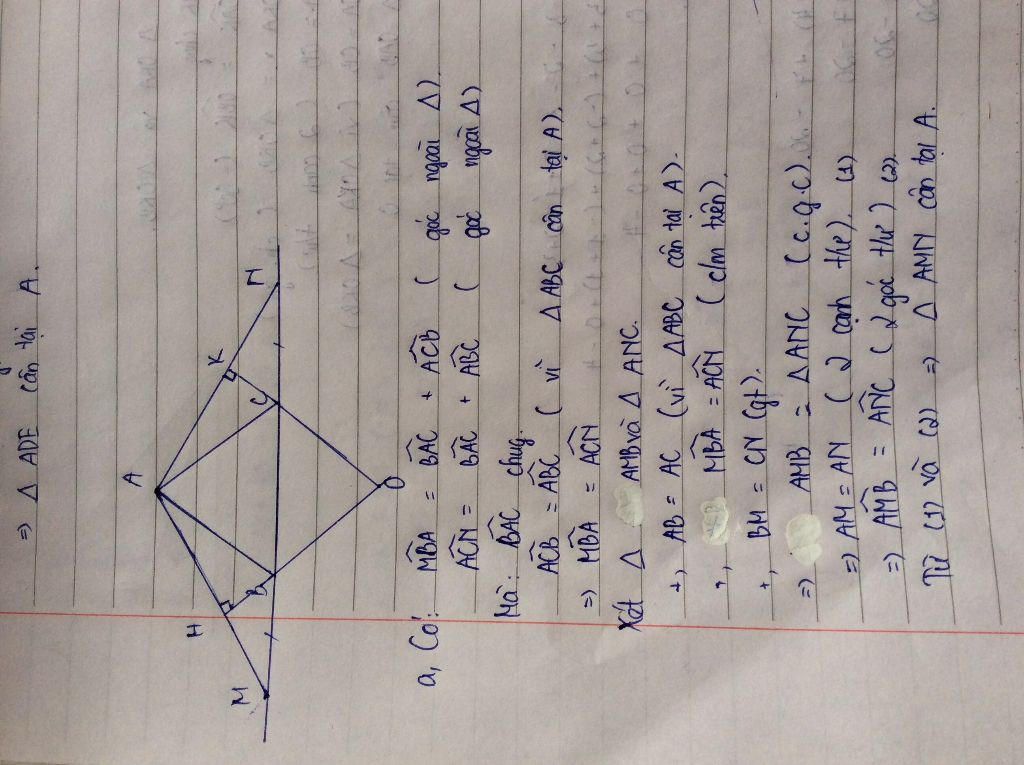 => Δ ADE cân tại A.
A
H
K
M
B
C
N
O
a, Có: M̂BA = B̂AC + ÂCB ( góc ngoài Δ).
ÂCN = B̂AC + ÂBC ( góc ngoài Δ)
Mà: B̂AC chug.
ÂCB = ÂBC ( vì Δ ABC cân tại A).
=> M̂BA = ÂCN
Xét Δ AMB và Δ ANC.
+, AB = AC (vì ΔABC cân tại A).
+, M̂BA = ÂCN ( c/m trên).
+, BM = CN (gt).
=> Δ AMB = Δ ANC ( c.g.c).
=> AM = AN ( 2 cạnh t/ư). (1)
=> ÂMB = ÂNC ( 2 góc t/ư) (2)
Từ (1) và (2) => Δ AMN cân tại A.